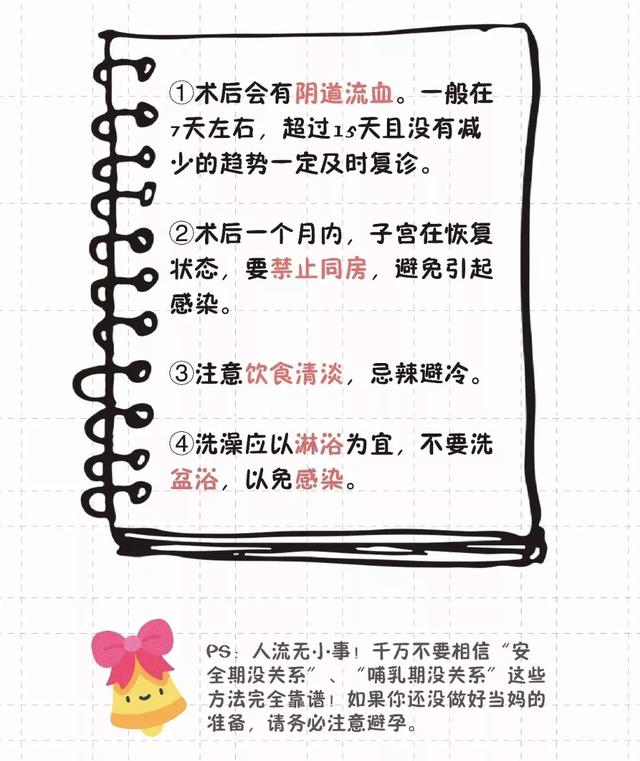 ①术后会有阴道流血。一般在
7天左右，超过15天且没有减
少的趋势一定及时复诊。
②术后一个月内，子宫在恢复
状态，要禁止同房，避免引起
感染。
③注意饮食清淡，忌辣避冷。
④洗澡应以淋浴为宜，不要洗
盆浴，以免感染。
PS：人流无小事！千万不要相信“安
全期没关系”、“哺乳期没关系”这些
方法完全靠谱！如果你还没做好当妈的
准备，请务必注意避孕。